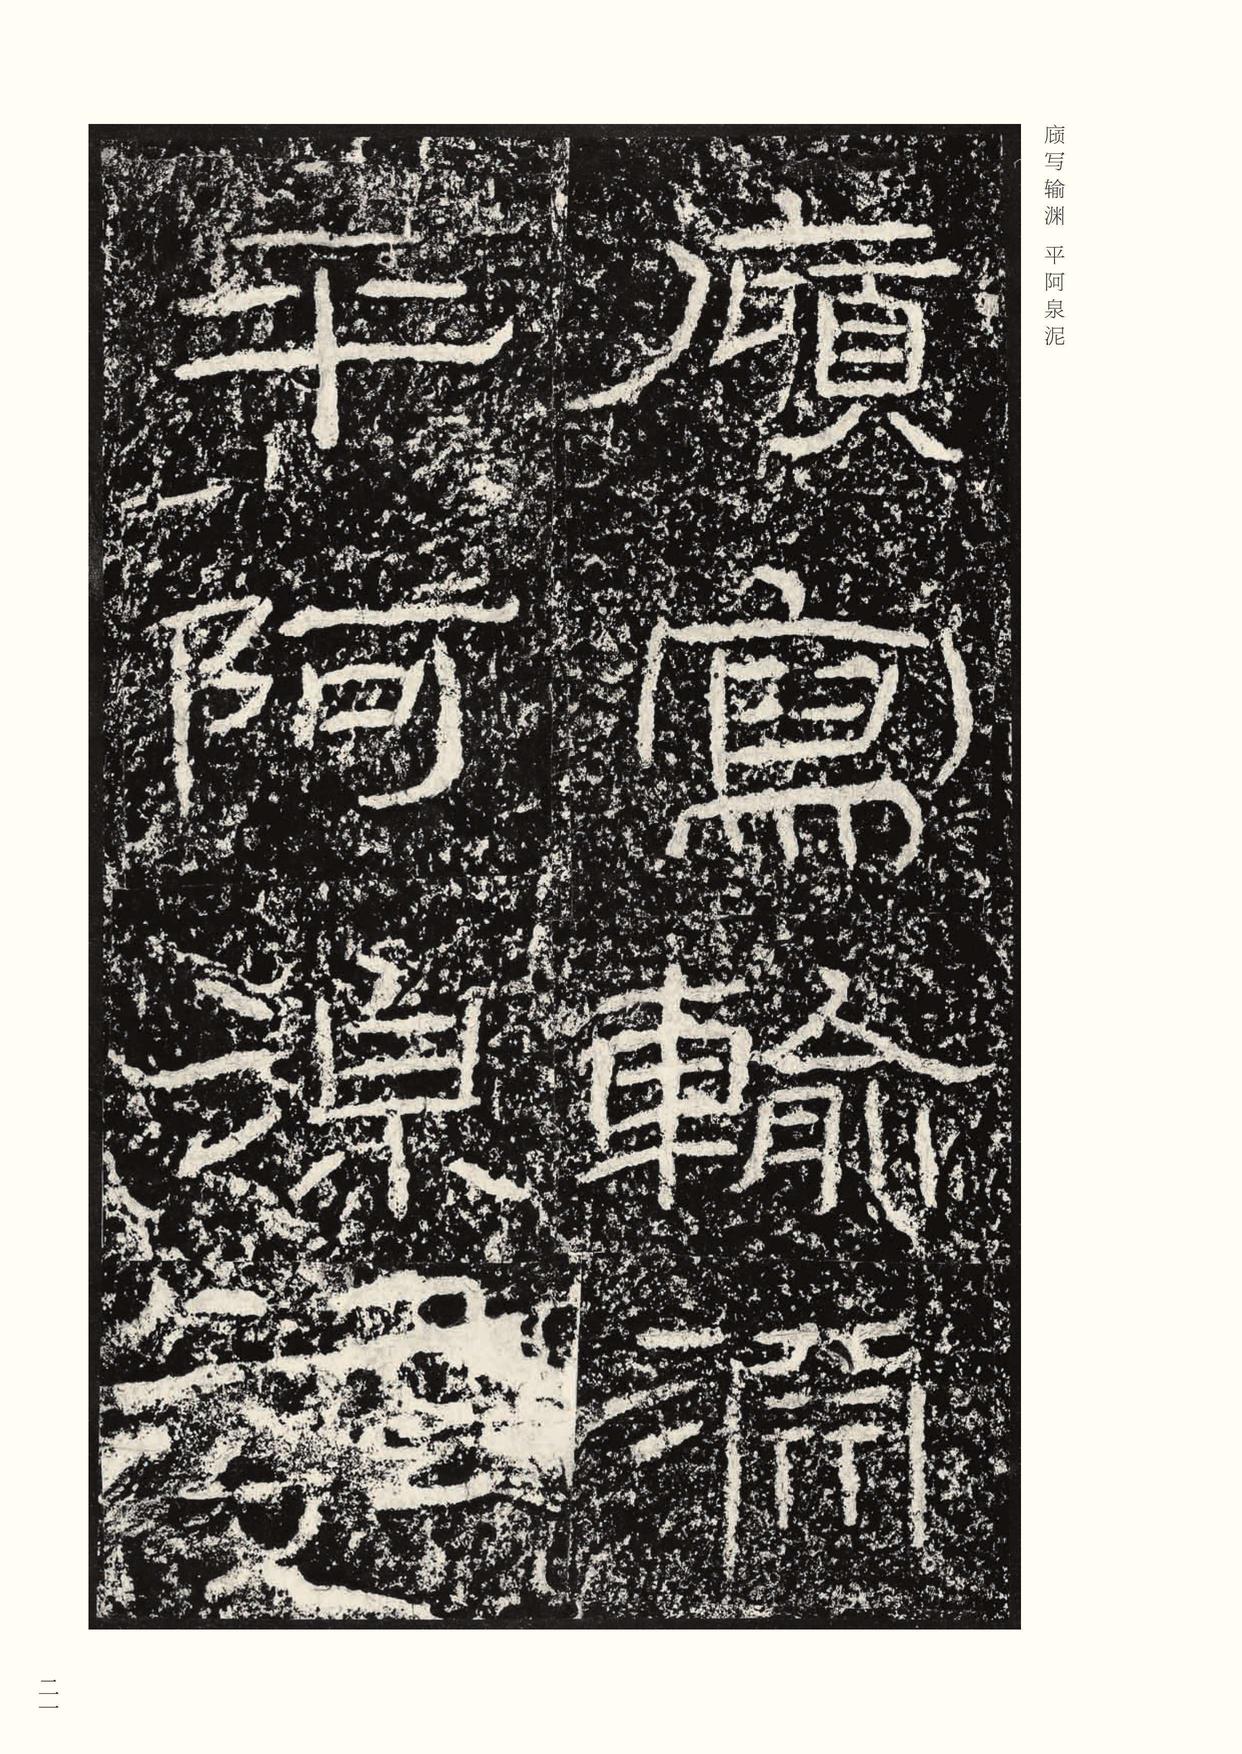 庼写输渊 平阿泉泥
廎寫輸淵
平阿湶
二一